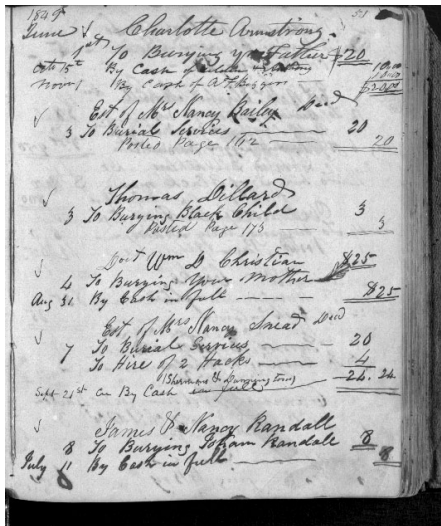 1849
51
June 1st Charlotte Armstrong
To Burying yr Father $20
Octo 15th By Cash of 10.00
Novr 1 By Cash of A F Biggers 10.00
$20.00
Est of Mrs Nancy Bailey Decd
3 To Burial Services 20
Posted Page 162 20
Thomas Dillard
3 To Burying Black Child 3
Posted Page 175 3
Doct Wm D Christian $25
4 To Burying Your Mother
Aug 31 By Cash in full $25
Est of Mrs Nancy Snead Decd
7 To Burial Services 20
To Hire of 2 Hacks 4
24. 24.
Sept 21st By Cash in full
James & Nancy Randall
8 To Burying Randall 8
July 11 By Cash in full 8